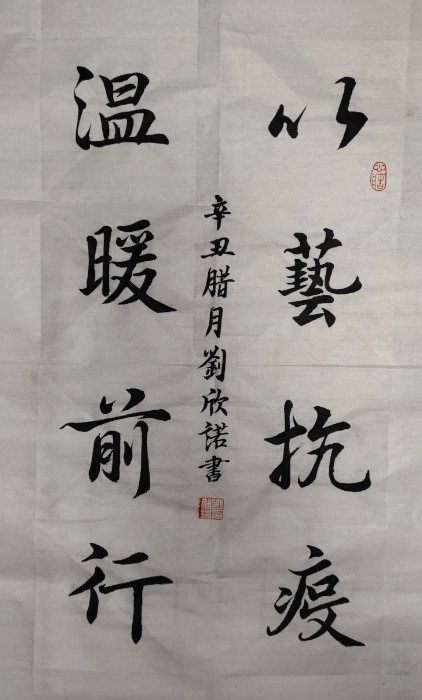 以藝抗疫
温暖前行
辛丑腊月劉欣諾書